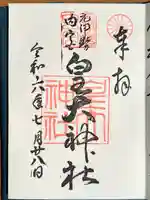 奉拝
元伊勢
内宮
皇大神社
令和六年七月廿八日